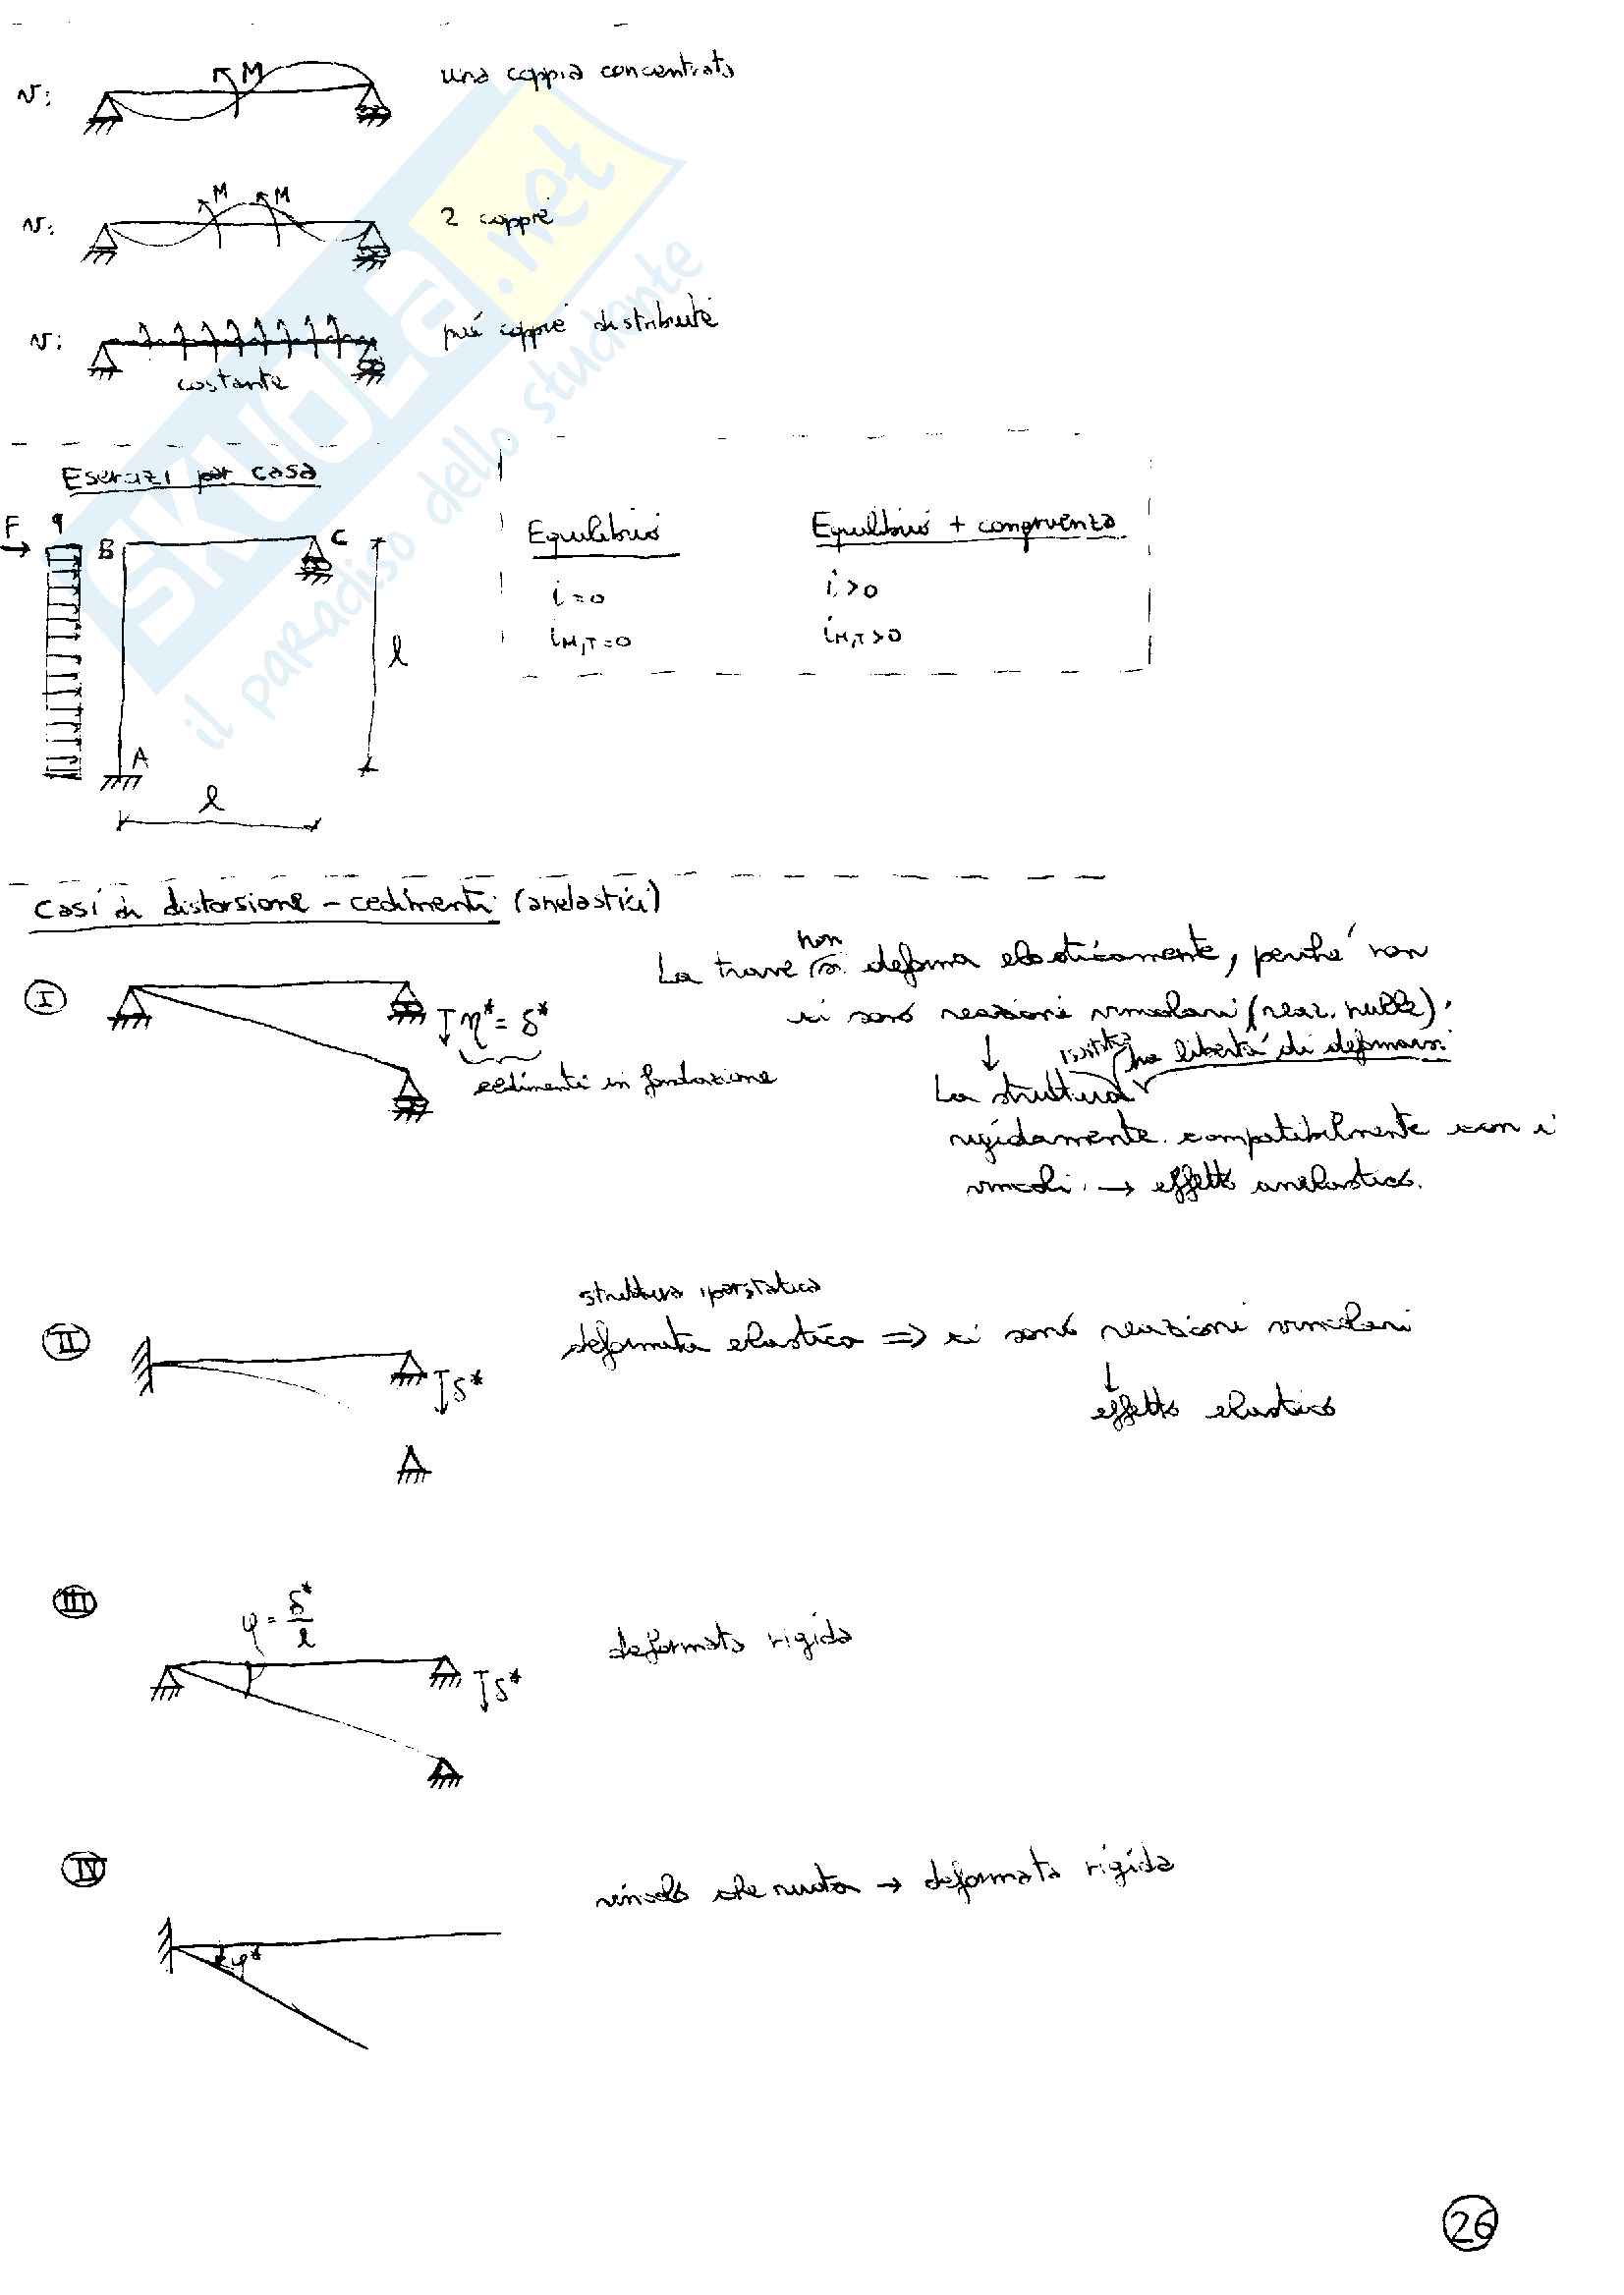 v: M una coppia concentrata
v: M M 2 coppie
v: più coppie distribuite
costante
Esercizi per casa
F q B C
l
A
l
Equilibrio Equilibrio + congruenza
i=0 i>0
iM,T=0 iM,T>0
Casi di distorsione - cedimenti (anelastici)
I η* = δ*
cedimenti in fondazione
La trave non si deforma elasticamente, perché non
ci sono reazioni vincolari (reaz. nulle).
↓
La struttura ha libertà di deformarsi
rigidamente compatibilmente con i
vincoli. → effetto anelastico.
II δ*
struttura iperstatica
deformata elastica => ci sono reazioni vincolari
↓
effetto elastico
III φ = δ*/l
δ*
deformata rigida
IV φ*
vincolo che ruota → deformata rigida
26
SKUOLA.net
il paradiso dello studente